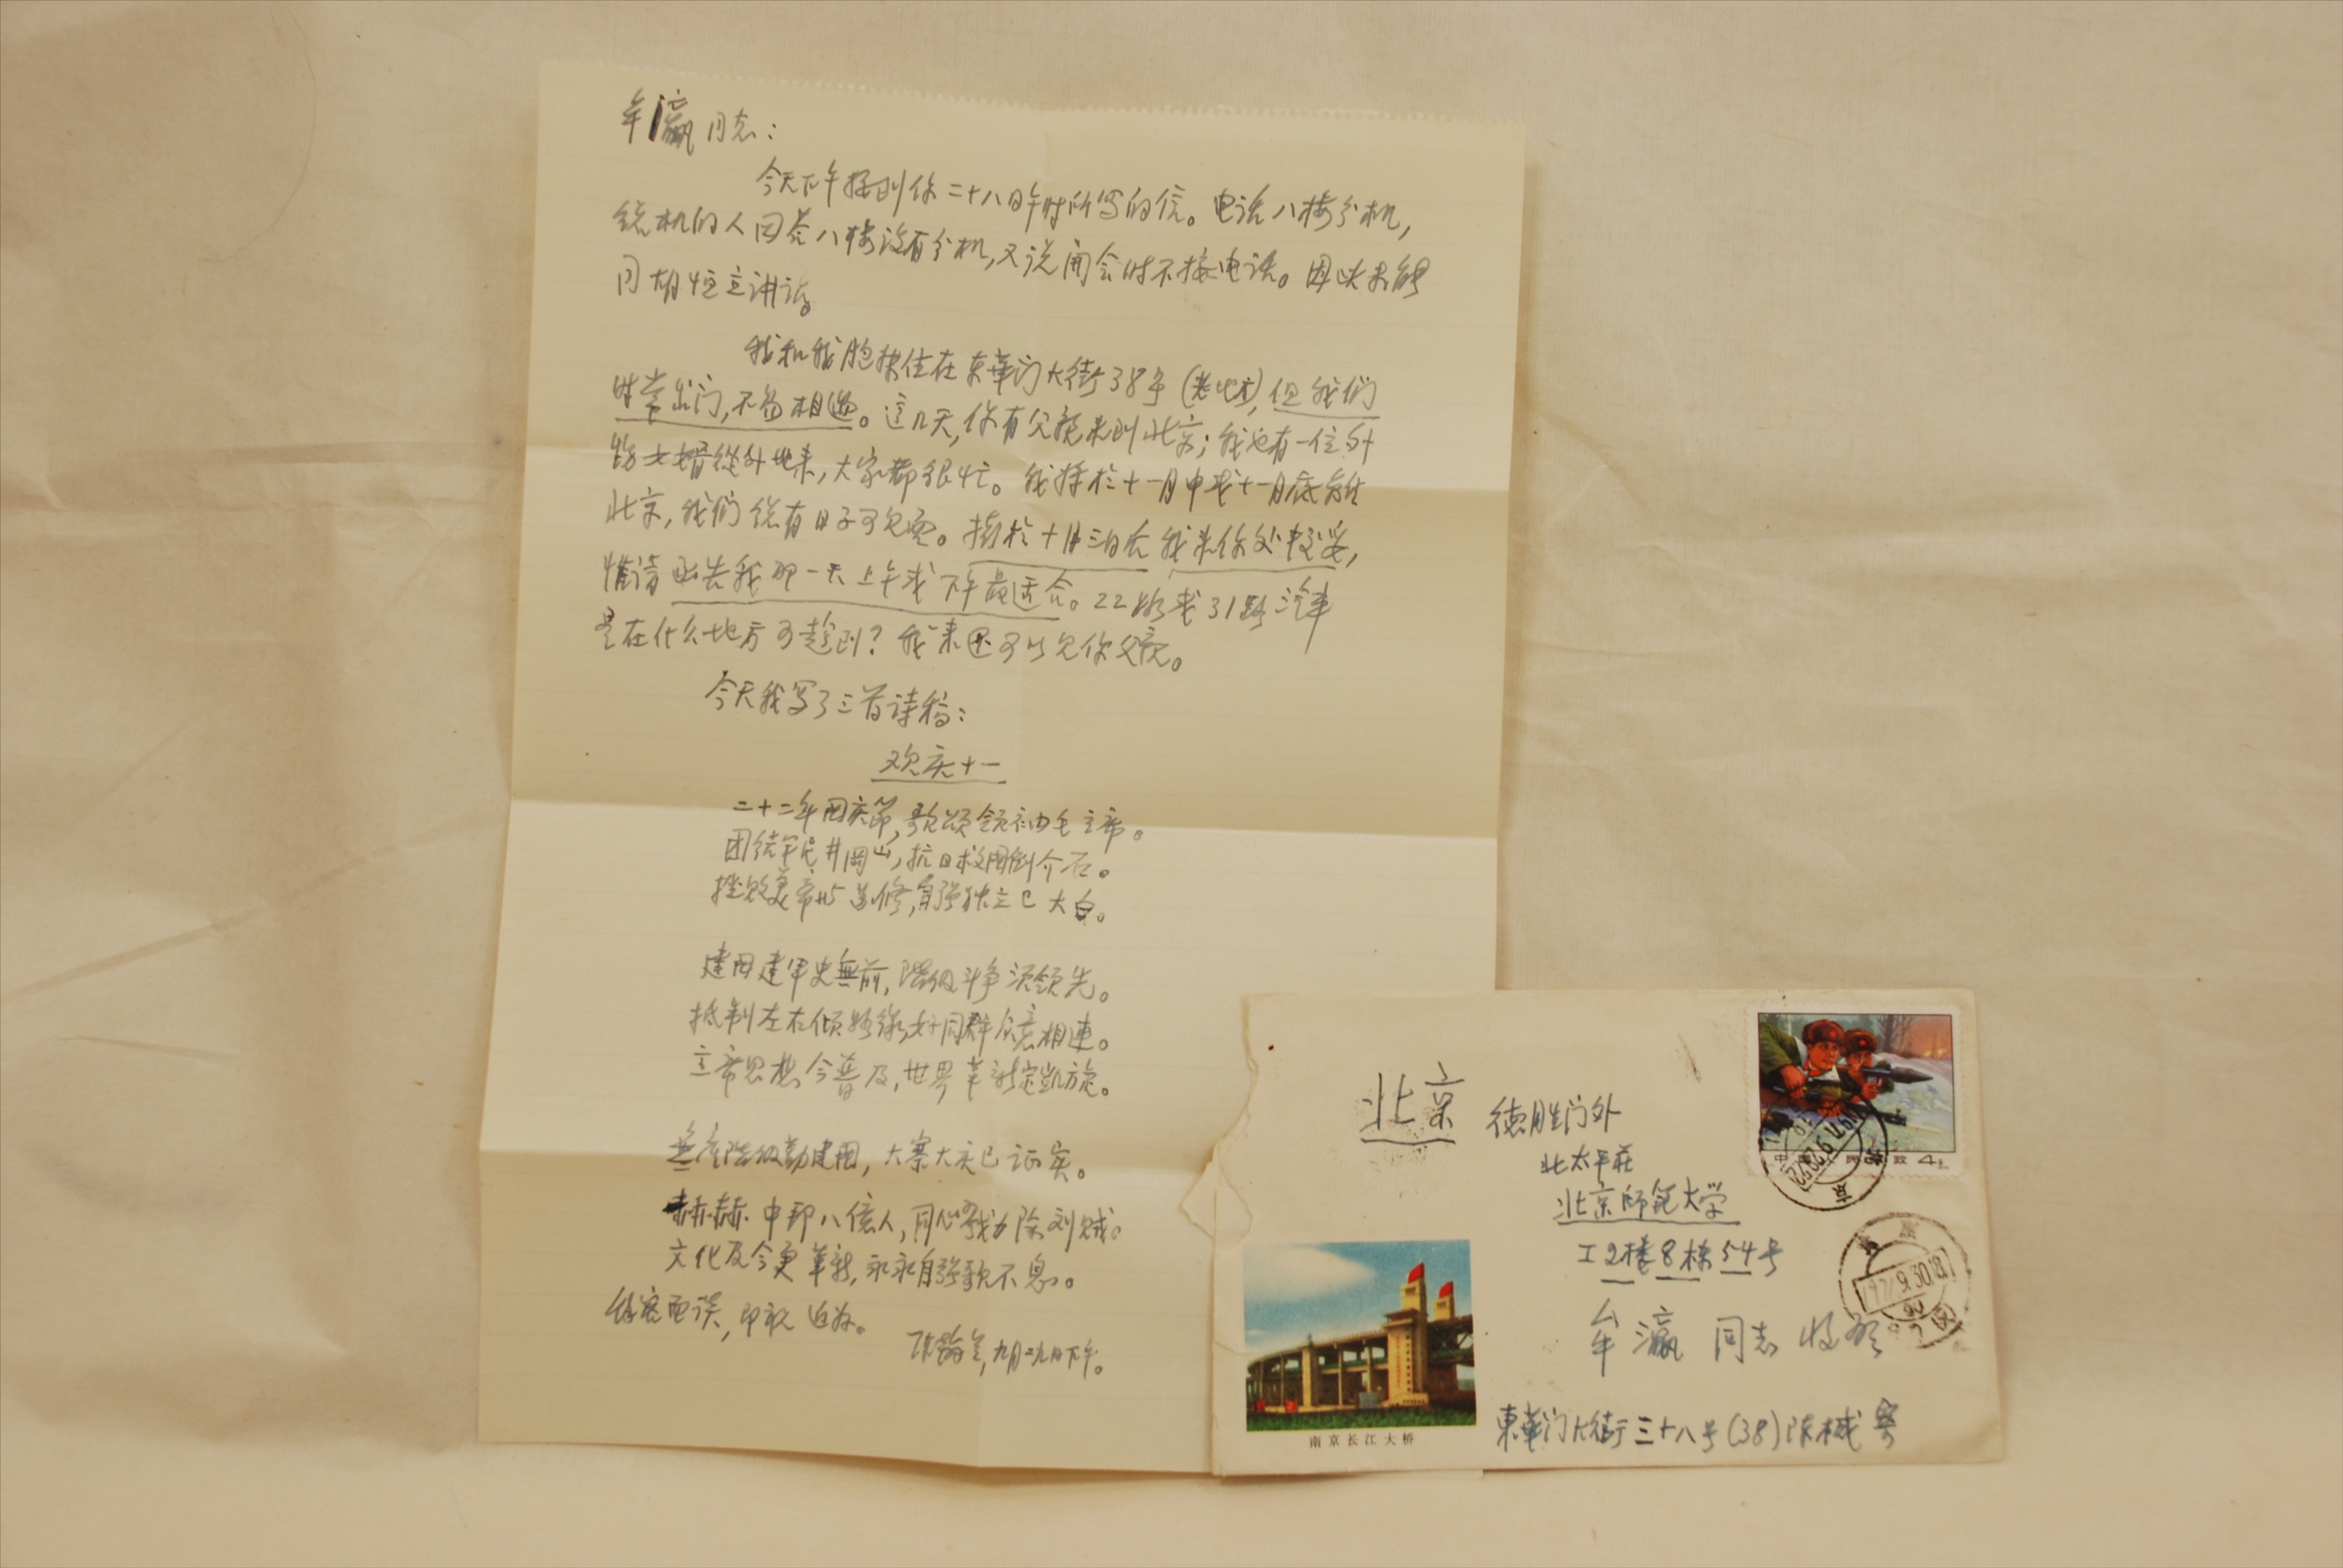 牟瀛同志：
今天下午接到你二十八日午时所写的信。电话八楼分机，
总机的人回答八楼没有分机，又说开会时不接电话。因此未能
同胡恒立讲话。
我和我胞妹住在东華门大街38号（老地方），但我们
时常出门，不易相遇。这几天，你有父亲来到北京；我也有一位外
甥女婿從外地来，大家都很忙。我将於十一月中或十一月底离
北京，我们总有日子可见面。拟於十月三日后我来你处较妥，
惟请函告我那一天上午或下午最适合。22路或31路汽车
是在什么地方可趁到？我来还可以见你父亲。
今天我写了三首诗稿：
欢庆十一
二十二年国庆节，歌颂领袖毛主席。
团结军民井岡山，抗日救国倒介石。
挫败美帝与苏修，自强独立已大白。
建国建军史無前，階级斗争须领先。
抵制左右倾路線，好同群众意相連。
主席思想今普及，世界革新定凯旋。
無产階级勤建国，大寨大庆已证实。
赫赫中华八億人，同心戮力除刘贼。
文化及今更革新，永永自强歌不息。
馀容面谈，即致近好。
九月廿九日下午。
北京 德胜门外
北太平莊
北京师范大学
工2楼8栋54号
牟瀛 同志 收啓
東華门大街三十八号（38）陈械寄
南京长江大桥
1971.9.30.18
北京